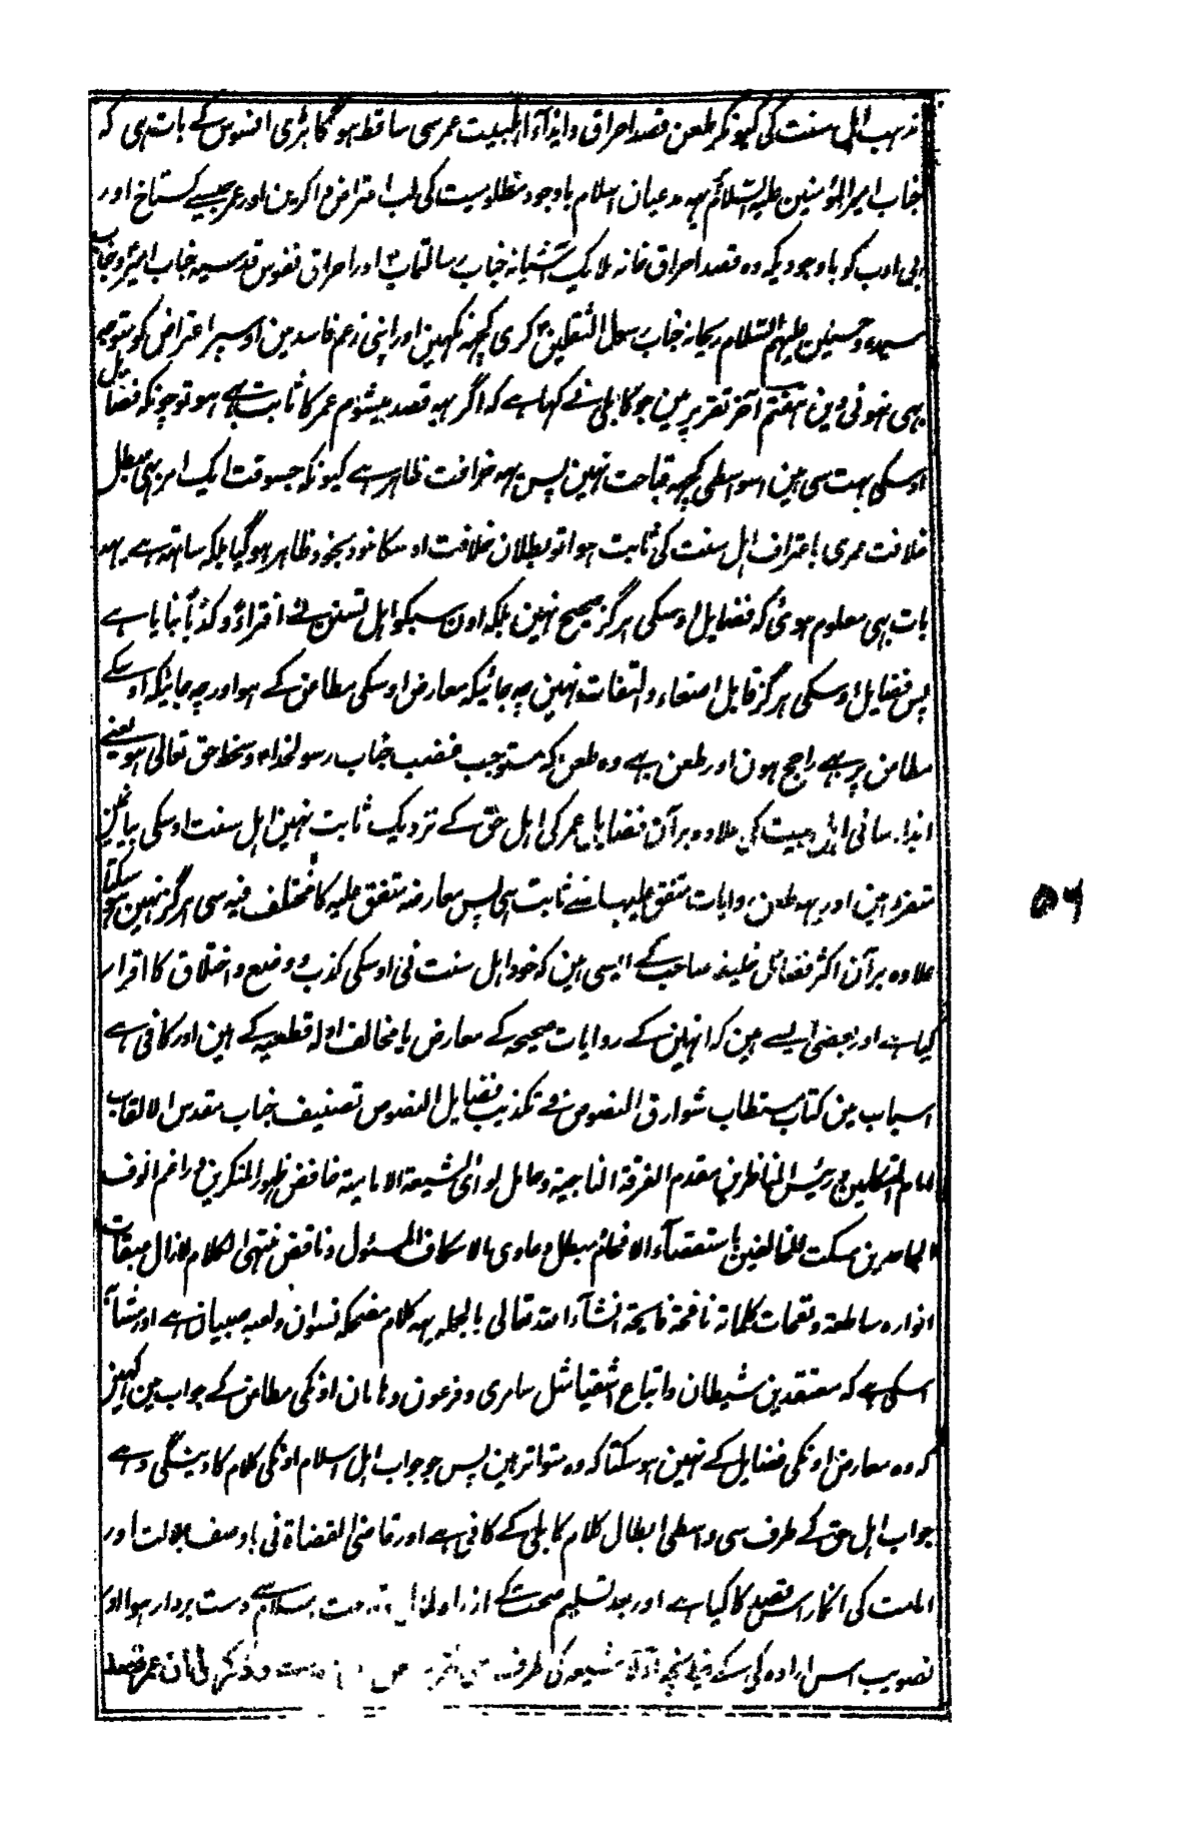 مذہب اہل سنت کی کیونکر طعن قصد احراق و ایذاء اہلبیت عمرسی ساقط ہوگا بڑی افسوس کے بات ہی کہ
جناب امیر المؤمنین علیہ السلام پر یہہ مدعیان اسلام باوجود مظلومیت کی لب اعتراض وا کرین اور عمر جیسے گستاخ اور
بی ادب کو باوجودیکہ وہ قصد احراق خانہ ملایک آشیانہ جناب رسالتمآب اور احراق نفوس قدسیہ جناب امیر و جناب
سیدہ و حسنین علیہم السلام ریحانہ جناب رسول الثقلین کری کچہہ نکہین اور اپنی زعم فاسد مین اوسپر اعتراض کو متوجہ
بہی نہونی دین ہفتم آخر تقریر مین جو کابلی نے کہا ہے کہ اگر یہہ قصد میشوم عمر کا ثابت بہی ہو تو چونکہ فضایل
اوسکی بہت سی ہین اسواسطی کچہہ قباحت نہین پس یہہ خرافت ظاہر ہے کیونکہ جسوقت ایک امر بہی مبطل
خلافت عمری باعتراف اہل سنت کی ثابت ہوا تو بطلان خلافت اوسکا خود بخود ظاہر ہوگیا بلکہ ساتھ ہے یہہ
بات بہی معلوم ہوئی کہ فضایل اوسکی ہرگز صحیح نہین بلکہ اون سبکو اہل تسنن نے افتراءً و کذباً بنایا ہے
پس فضایل اوسکی ہرگز قابل اصغاء و التفات نہین چہ جائیکہ معارض اوسکی مطاعن کے ہو اور چہ جائیکہ اوسکے
مطاعن پر بہے راجح ہون اور طعن بہے وہ طعن کہ مستوجب غضب جناب رسولخدا و سخط حق تعالی ہو یعنے
ایذا رسانی اہل بیت کی علاوہ بر آن فضایل عمر کی اہل حق کے نزدیک ثابت نہین اہل سنت اوسکی بیانمین
متفرد ہین اور یہہ طعن روایات متفق علیہا سے ثابت ہی پس معارضہ متفق علیہ کا مختلف فیہ سی ہرگز نہین ہو سکتا
علاوہ بر آن اکثر فضائل خلیفہ صاحب کے ایسی ہین کہ خود اہل سنت نی اوسکی کذب و وضع و اختلاق کا اقرار
کیا ہے اور بعضی ایسے ہین کہ انہین کے روایات صحیحہ کے معارض یا مخالف ادلہ قطعیہ کے ہین اور کافی ہے
اسباب مین کتاب مستطاب شوارق النصوص فے تکذیب فضایل اللصوص تصنیف جناب مقدس الالقاب
امام المتکلمین رئیس المناظرین مقدم الفرقة الناجیة و حامل لوای الشیعة الامامیة خافض ظہور المنکرین راغم انوف
الجاحدین مسکت المخالفین باستقصاء الافحام مبطل دعاوی بالاسعاف المسئول و ناقض منتہی الکلام لازال صبقات
انوارہ ساطعة و نفحات کلماتہ نافحة فایحة انشاء اللہ تعالی بالجملہ یہہ کلام مضحکہ نسوان و لعبہ صبیان ہے اور مشابہ
اسکی ہے کہ معتقدین شیطان و اتباع اشقیا مثل سامری و فرعون و ہامان اونکی مطاعن کے جواب مین کہین
کہ وہ معارض اونکی فضایل کے نہین ہو سکتا کہ وہ متواتر ہین پس جو جواب اہل اسلام اونکی کلام کا دینگی وہے
جواب اہل حق کے طرف سی واسطی ابطال کلام کابلی کے کافی ہے اور قاضی القضاة نی باوصف جلالت اور
امامت کی انکار اس قصد کا کیا ہے اور بعد تسلیم صحت کے از راہ اسلام سے دست بردار ہوا اور
تصویب اس ارادہ کی کے ہے چنانچہ شیعہ کی طرف
۵۶